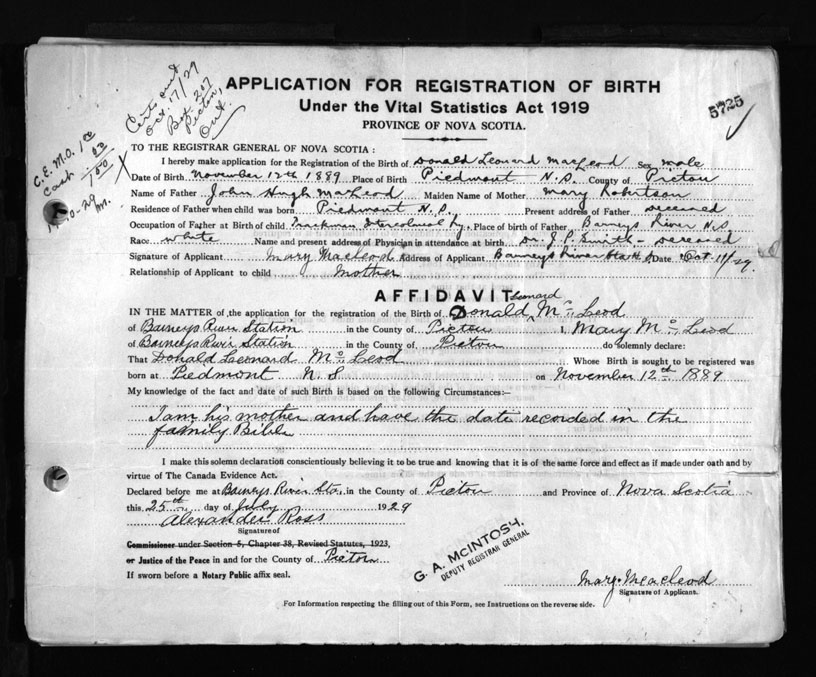 Certs out
Oct. 17/29
Box 207
Pictou,
Ont.
APPLICATION FOR REGISTRATION OF BIRTH
Under the Vital Statistics Act 1919
PROVINCE OF NOVA SCOTIA.
5725
C.E.M.O. 1.00
Cash .50
1.50
10-29
TO THE REGISTRAR GENERAL OF NOVA SCOTIA :
I hereby make application for the Registration of the Birth of Donald Leonard MacLeod Sex male
Date of Birth November 12th 1889 Place of Birth Piedmont N.S. County of Pictou
Name of Father John Hugh MacLeod Maiden Name of Mother Mary Robertson
Residence of Father when child was born Piedmont N.S. Present address of Father deceased
Occupation of Father at Birth of child Trackman Intercolonial Ry. Place of birth of Father Barneys River N.S
Race white Name and present address of Physician in attendance at birth Dr. J.P. Smith - deceased
Signature of Applicant Mary Macleod Address of Applicant Barneys River Sta N.S Date Oct 11/29.
Relationship of Applicant to child mother
AFFIDAVIT
Leonard
IN THE MATTER of the application for the registration of the Birth of Donald McLeod
of Barneys River Station in the County of Pictou I, Mary McLeod
of Barneys River Station in the County of Pictou do solemnly declare:
That Donald Leonard McLeod Whose Birth is sought to be registered was
born at Piedmont N.S on November 12th 1889
My knowledge of the fact and date of such Birth is based on the following Circumstances:—
I am his mother and have the date recorded in the
family Bible
I make this solemn declaration conscientiously believing it to be true and knowing that it is of the same force and effect as if made under oath and by
virtue of The Canada Evidence Act.
Declared before me at Barneys River Sta. in the County of Pictou and Province of Nova Scotia
this 25th day of July 1929
Alexander Ross
Signature of
Commissioner under Section 5, Chapter 38, Revised Statutes, 1923,
or Justice of the Peace in and for the County of Pictou
If sworn before a Notary Public affix seal.
G. A. MCINTOSH,
DEPUTY REGISTRAR GENERAL
Mary Macleod
Signature of Applicant.
For Information respecting the filling out of this Form, see Instructions on the reverse side.